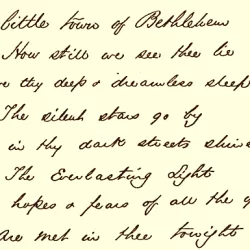 little town of Bethlehem
How still we see thee lie
thy deep & dreamless sleep
The silent stars go by
in thy dark streets shine
The Everlasting Light
hopes & fears of all the
Are met in thee tonight